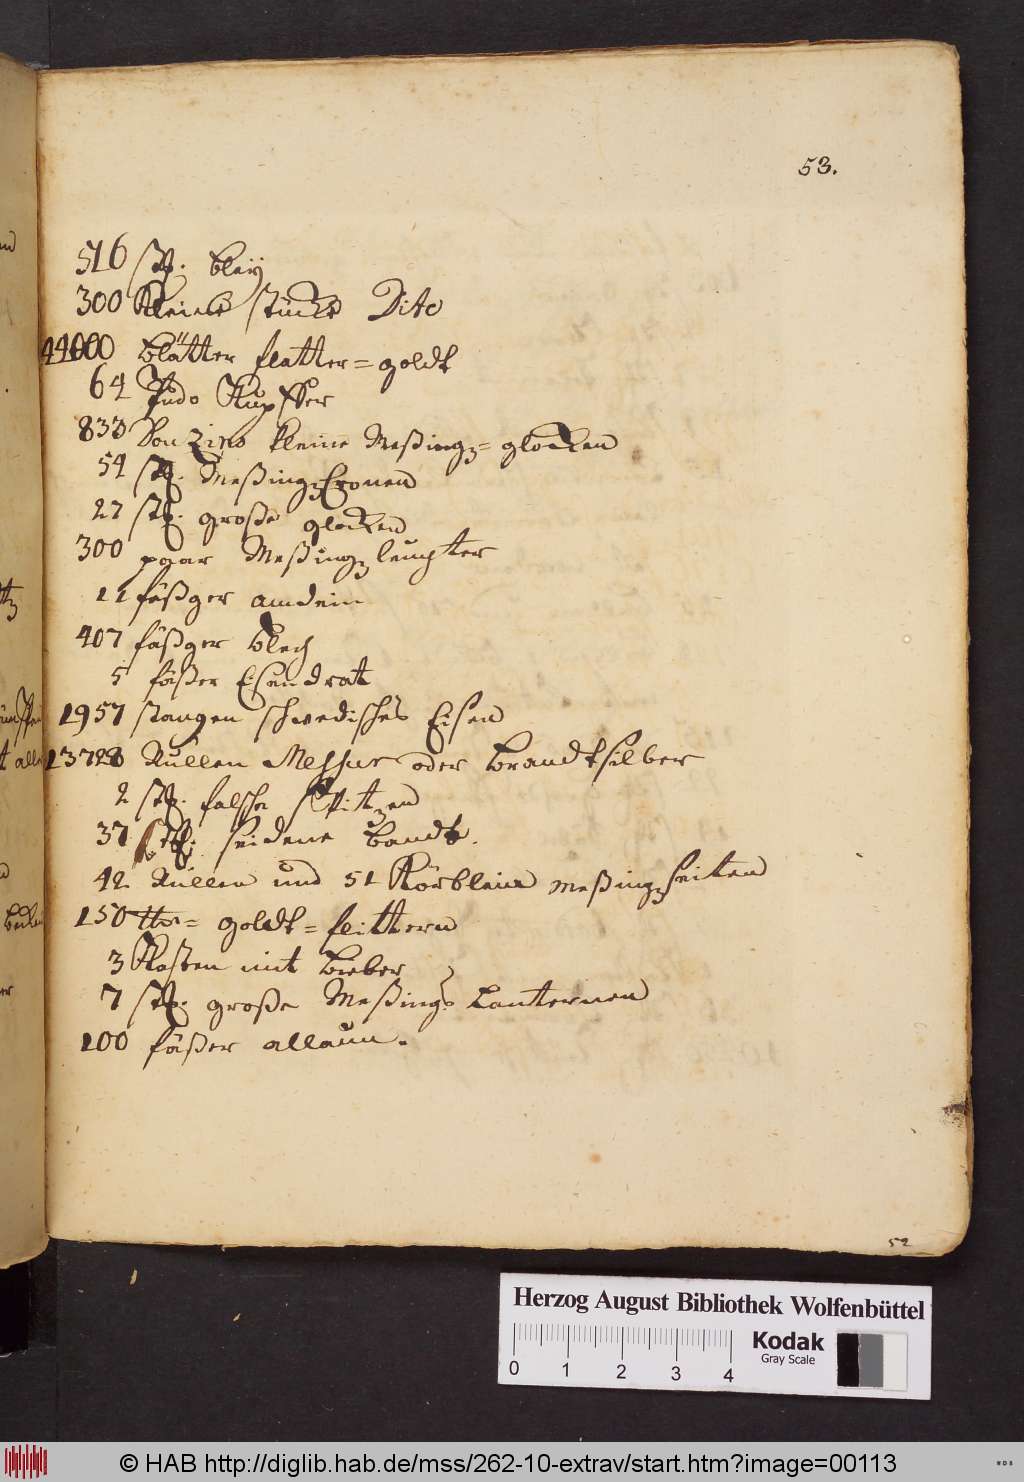 53.
516 stk. bleij
300 kleine stücke Dito
44000 blätter flatter=goldt
64 Kupffer
833 kleine Meßing=glocken
54 stk. Meßing Cronen
27 stk. große glocken
300 paar Meßing leuchter
11 fäßger
407 fäßger blech
5 fäßer Eisendrat
1957 stangen schwedisches Eisen
Rullen oder brandtsilber
2 stk. falsche Spitzen
37 stk. seidene bandt.
42 Rullen und 51 Körbleine Meßing seiten
150 goldt=flittern
3 Kasten mit bieber
7 stk. große Meßings Lanternen
100 fäßer allaun.
52
Herzog August Bibliothek Wolfenbüttel
Kodak
Gray Scale
0 1 2 3 4
© HAB http://diglib.hab.de/mss/262-10-extrav/start.htm?image=00113